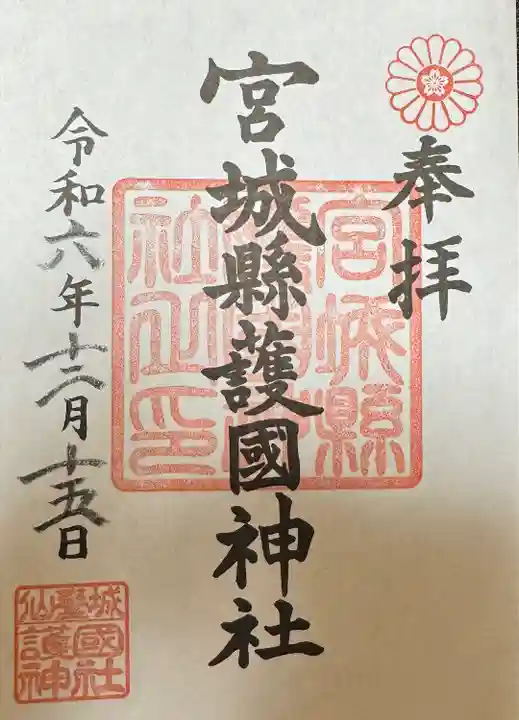 奉拝
宮城縣護國神社
令和六年十二月十五日
宮城縣護國神社之印
仙臺城護國神社